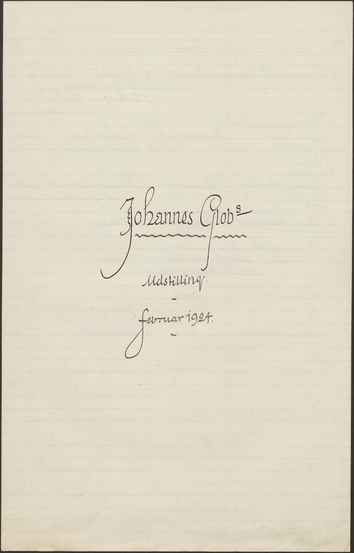 Johannes Globs
Udstilling
februar 1924.